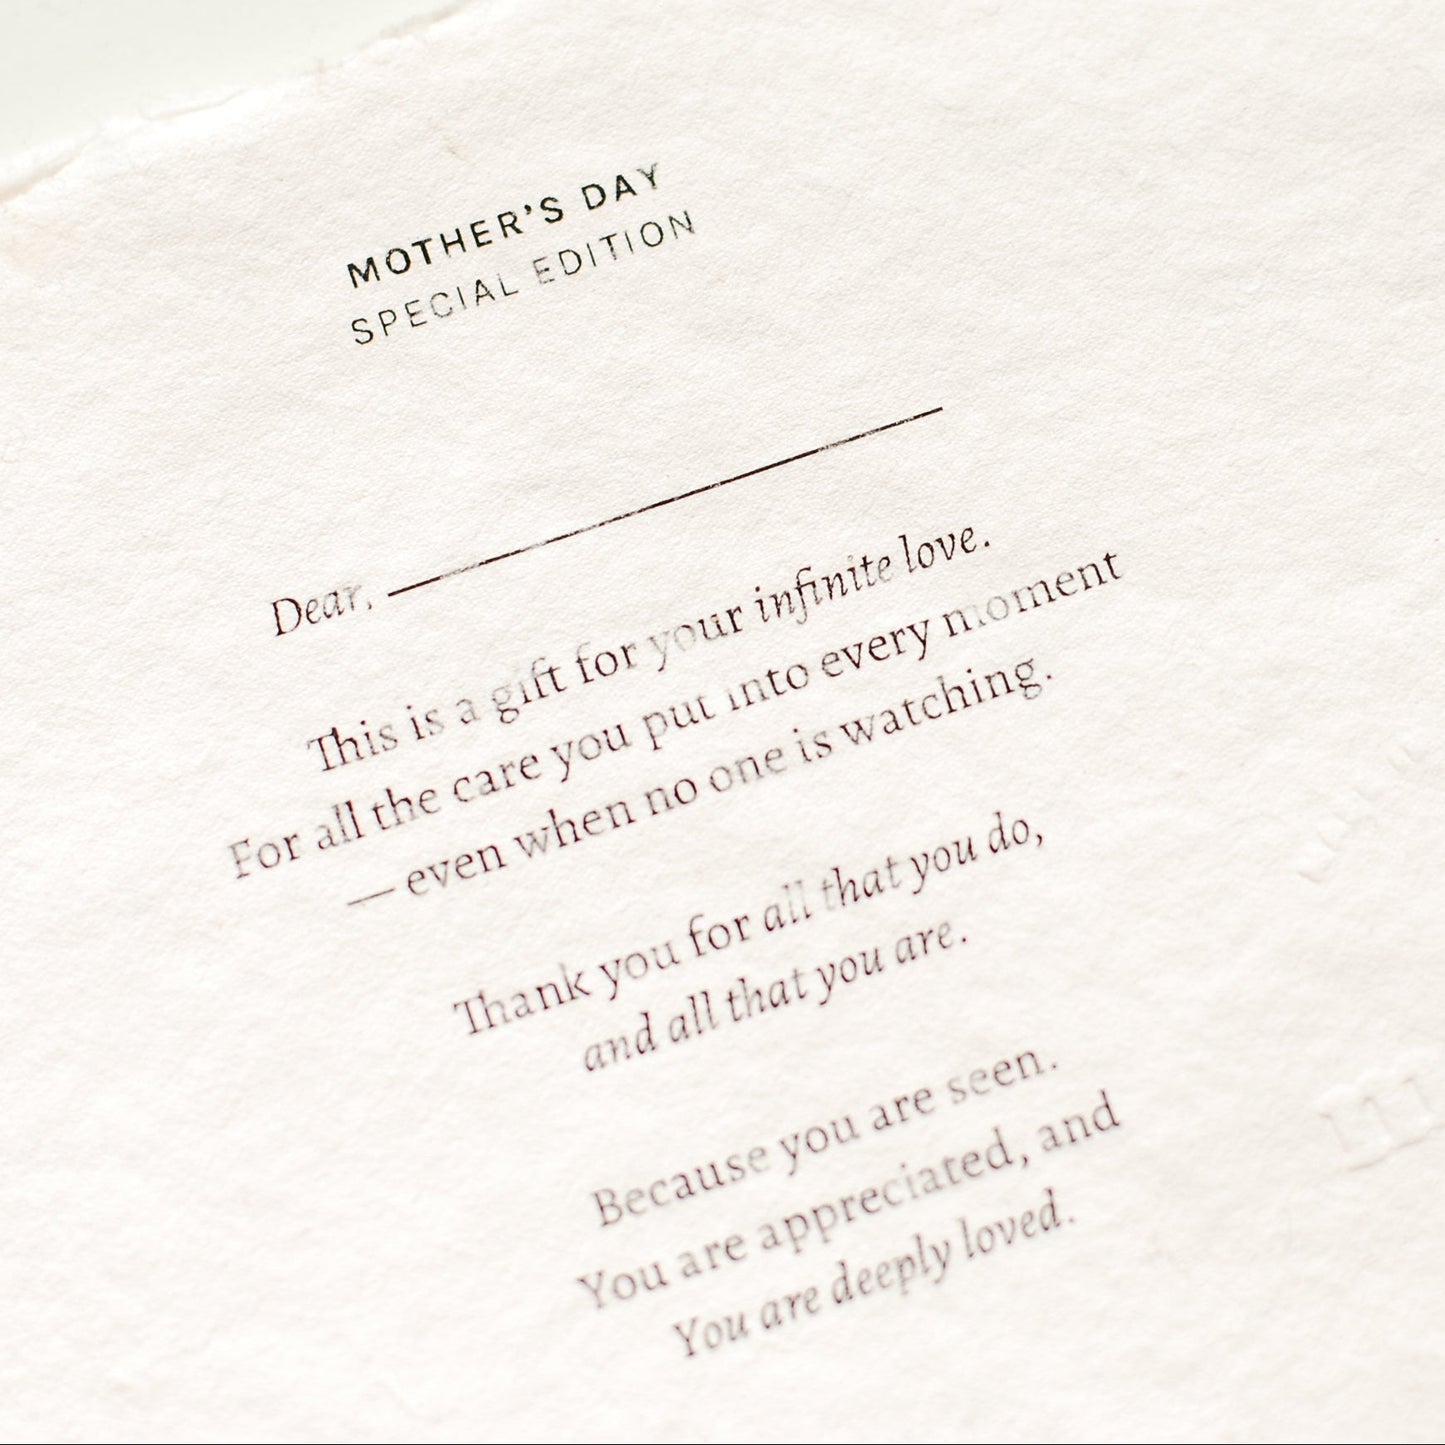 MOTHER'S DAY
SPECIAL EDITION
Dear,
This is a gift for your infinite love.
For all the care you put into every moment
— even when no one is watching.
Thank you for all that you do,
and all that you are.
Because you are seen.
You are appreciated, and
You are deeply loved.